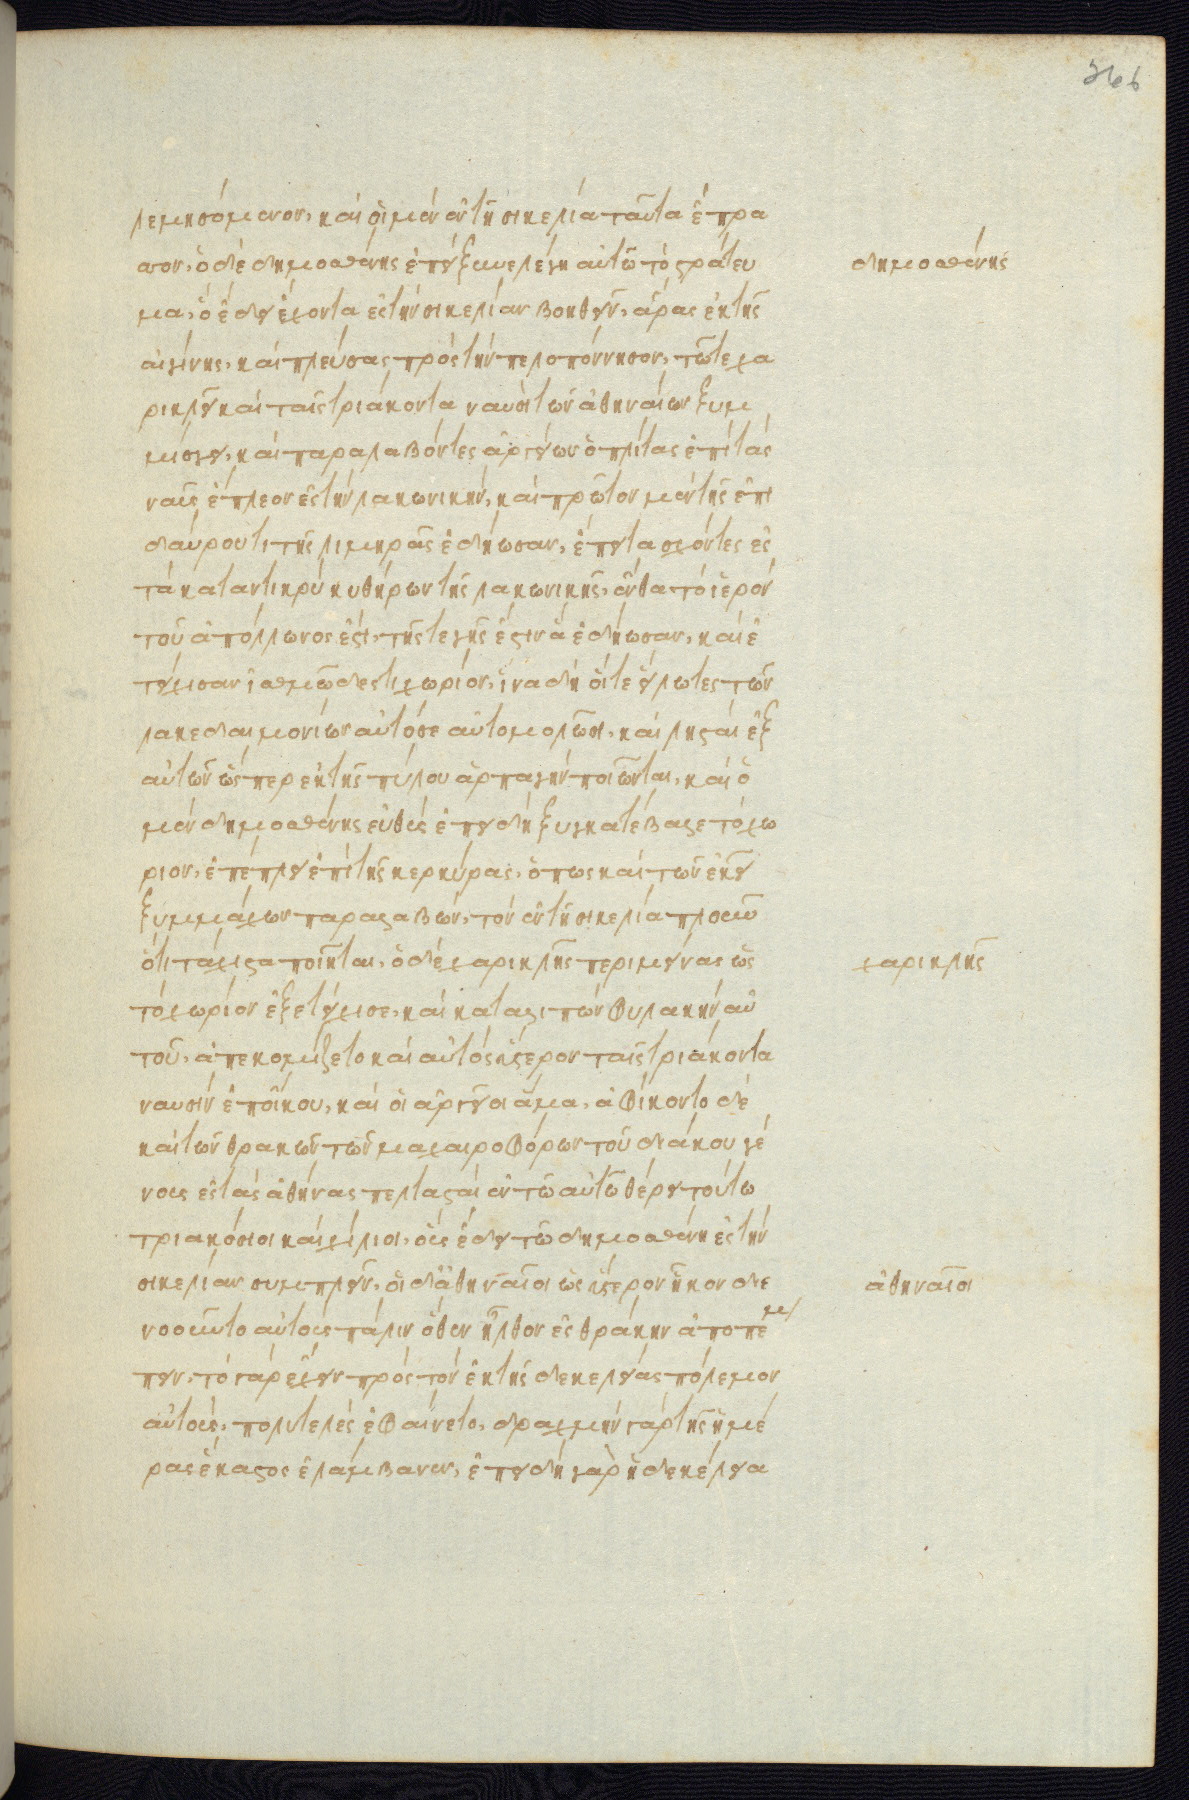 366
λεμησόμενον, καὶ οἱ μὲν ἐν τῆ σικελία ταῦτα ἔπρα
σσον, ὁ δὲ δημοσθένης ἐπεὶ ξυνελέγη αὐτῶ τὸ στράτευ
δημοσθένης
μα, ὃ ἔδει ἔχοντα ἐς τὴν σικελίαν βοηθεῖν, ἄρας ἐκ τῆς
αἰγίνης, καὶ πλεύσας πρὸς τὴν πελοπόννησον, τῶ τε χα
ρικλεῖ καὶ ταῖς τριάκοντα ναυσὶ τῶν ἀθηναίων ξυμ
μίσγει, καὶ παραλαβόντες ἀργείων ὁπλίτας ἐπὶ τὰς
ναῦς ἔπλεον ἐς τὴν λακωνικήν, καὶ πρῶτον μὲν τῆς ἐπι
δαύρου τι τῆς λιμηρᾶς ἐδήωσαν, ἔπειτα σχόντες ἐς
τὰ καταντικρὺ κυθήρων τῆς λακωνικῆς, ἔνθα τὸ ἱερὸν
τοῦ ἀπόλλωνος ἐστι, τῆς τε γῆς ἔστιν ἃ ἐδήωσαν, καὶ ἐ
τείχισαν ἰσθμῶδές τι χωρίον, ἵνα δὴ οἵ τε εἵλωτες τῶν
λακεδαιμονίων αὐτόσε αὐτομολῶσι, καὶ λῃσταὶ ἐξ
αὐτῶν ὥσπερ ἐκ τῆς πύλου ἁρπαγὴν ποιῶνται, καὶ ὁ
μὲν δημοσθένης εὐθὺς ἐπειδὴ ξυγκατέβαλε τὸ χω
ρίον, ἐπέπλει ἐπὶ τῆς κερκύρας, ὅπως καὶ τῶν ἐκεῖ
ξυμμάχων παραλαβών, τὸν ἐν τῆ σικελία πλοῦν
ὅτι τάχιστα ποιῆται, ὁ δὲ χαρικλῆς περιμείνας ὡς
χαρικλῆς
τὸ χωρίον ἐξετείχισε, καὶ καταλιπὼν φυλακὴν αὐ
τοῦ, ἀπεκομίζετο καὶ αὐτὸς ὕστερον ταῖς τριάκοντα
ναυσὶν ἐπ οἴκου, καὶ οἱ ἀργεῖοι ἅμα, ἀφίκοντο δὲ
καὶ τῶν θρακῶν τῶν μαχαιροφόρων τοῦ διακοῦ γέ
νους ἐς τὰς ἀθήνας πελτασταὶ ἐν τῶ αὐτῶ θέρει τούτω
τριακόσιοι καὶ χίλιοι, οὓς ἔδει τῶ δημοσθένει ἐς τὴν
σικελίαν συμπλεῖν, οἱ δ' ἀθηναῖοι ὡς ὕστερον ἧκον διε
ἀθηναῖοι
νοοῦντο αὐτοὺς πάλιν ὅθεν ἦλθον ἐς θράκην ἀποπέμ
πειν, τὸ γὰρ ἔχειν πρὸς τὸν ἐκ τῆς δεκελείας πόλεμον
αὐτοὺς, πολυτελὲς ἐφαίνετο, δραχμὴν γὰρ τῆς ἡμέ
ρας ἕκαστος ἐλάμβανεν, ἐπειδὴ γὰρ ἡ δεκέλεια